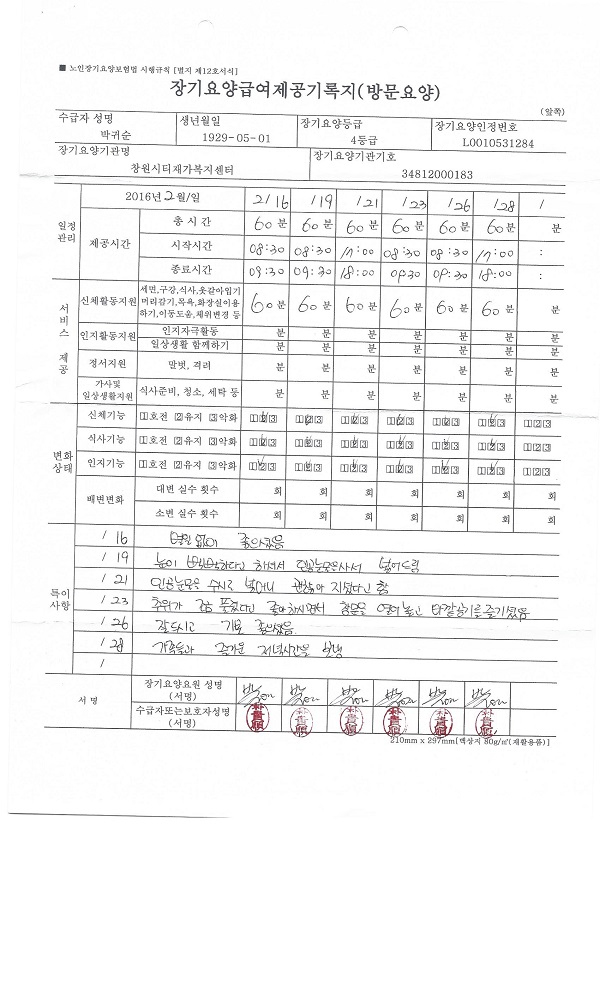 ■ 노인장기요양보험법 시행규칙 [별지 제12호서식]
장기요양급여제공기록지(방문요양)
(앞쪽)
수급자 성명 생년월일 장기요양등급 장기요양인정번호
박귀순 1929-05-01 4등급 L0010531284
장기요양기관명 장기요양기관기호
창원시티재가복지센터 34812000183
일정관리 2016년 2월/일 2/16 /19 /21 /23 /26 /28 /
제공시간 총 시 간 60 분 60 분 60 분 60 분 60 분 60 분 분
시작시간 08:30 08:30 17:00 08:30 08:30 17:00 :
종료시간 09:30 09:30 18:00 0930 09:30 18:00 :
서비스 제공 신체활동지원 세면,구강,식사,옷갈아입기
머리감기,목욕,화장실이용
하기,이동도움,체위변경 등 60 분 60 분 60 분 60 분 60 분 60 분 분
인지활동지원 인지자극활동 분 분 분 분 분 분 분
일상생활 함께하기 분 분 분 분 분 분 분
정서지원 말벗, 격려 분 분 분 분 분 분 분
가사및 일상생활지원 식사준비, 청소, 세탁 등 분 분 분 분 분 분 분
변화상태 신체기능 1호전 2유지 3악화 123 123 123 123 123 123 123
식사기능 1호전 2유지 3악화 123 123 123 123 123 123 123
인지기능 1호전 2유지 3악화 123 123 123 123 123 123 123
배변변화 대변 실수 횟수 회 회 회 회 회 회 회
소변 실수 횟수 회 회 회 회 회 회 회
특이사항
/ 16 별일 없이 좋으셨음
/ 19 눈이 하다고 하셔서 인공눈물을 사서 넣어드림
/ 21 인공눈물을 수시로 넣더니 괜찮아 지셨다고 함
/ 23 추위가 좀 풀렸다고 좋아하시면서 창문을 열어 놓고 를 즐기셨음
/ 26 잘드시고 기분 좋으셨음
/ 28 가족들과 즐거운 저녁시간을 보냄
/
서 명 장기요양요원 성명
(서명)
수급자또는보호자성명
(서명) 朴貴順 朴貴順 朴貴順 朴貴順 朴貴順 朴貴順
210mm x 297mm[백상지 80g/㎡(재활용품)]